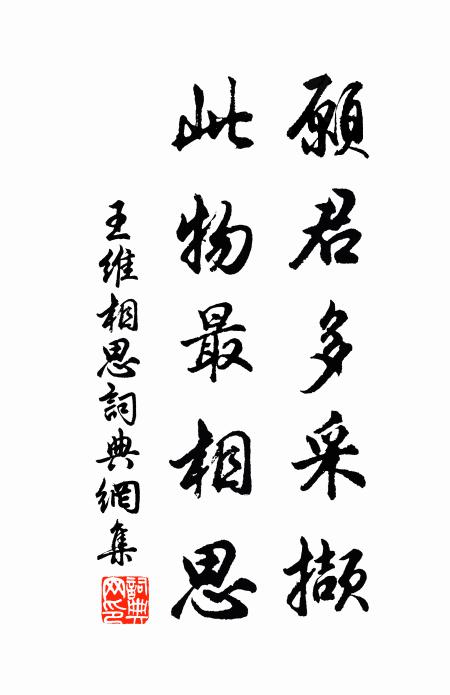 願君多采擷
此物最相思
王維相思詞典網集
詞典
网印